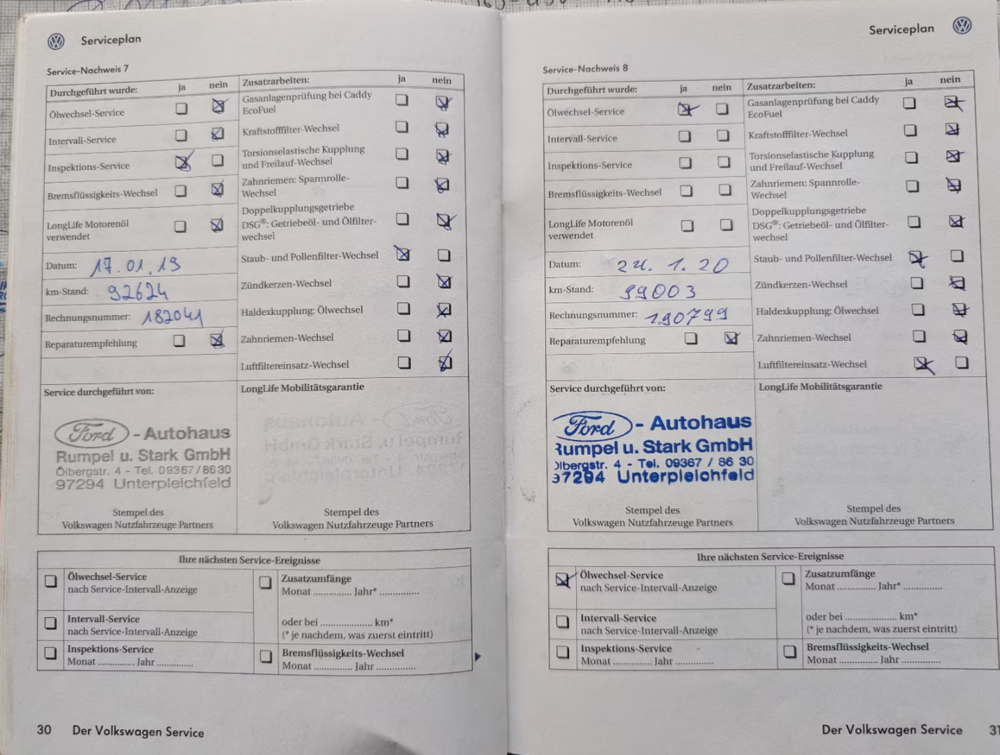 Serviceplan
Service-Nachweis 7
Durchgeführt wurde: ja nein
Ölwechsel-Service
Intervall-Service
Inspektions-Service
Bremsflüssigkeits-Wechsel
LongLife Motorenöl
verwendet
Datum: 17.01.19
km-Stand: 92624
Rechnungsnummer: 182041
Reparaturempfehlung
Zusatzarbeiten: ja nein
Gasanlagenprüfung bei Caddy
EcoFuel
Kraftstofffilter-Wechsel
Torsionselastische Kupplung
und Freilauf-Wechsel
Zahnriemen: Spannrolle-
Wechsel
Doppelkupplungsgetriebe
DSG®: Getriebeöl- und Ölfilter-
wechsel
Staub- und Pollenfilter-Wechsel
Zündkerzen-Wechsel
Haldexkupplung: Ölwechsel
Zahnriemen-Wechsel
Luftfiltereinsatz-Wechsel
Service durchgeführt von:
Ford - Autohaus
Rumpel u. Stark GmbH
Ölbergstr. 4 - Tel. 09367 / 86 30
97294 Unterpleichfeld
Stempel des
Volkswagen Nutzfahrzeuge Partners
LongLife Mobilitätsgarantie
Stempel des
Volkswagen Nutzfahrzeuge Partners
Ihre nächsten Service-Ereignisse
Ölwechsel-Service
nach Service-Intervall-Anzeige
Intervall-Service
nach Service-Intervall-Anzeige
Inspektions-Service
Monat .............. Jahr ..............
Zusatzumfänge
Monat .............. Jahr* ..............
oder bei .................... km*
(* je nachdem, was zuerst eintritt)
Bremsflüssigkeits-Wechsel
Monat .............. Jahr ..............
30 Der Volkswagen Service
Serviceplan
Service-Nachweis 8
Durchgeführt wurde: ja nein
Ölwechsel-Service
Intervall-Service
Inspektions-Service
Bremsflüssigkeits-Wechsel
LongLife Motorenöl
verwendet
Datum: 24.1.20
km-Stand: 99003
Rechnungsnummer: 190799
Reparaturempfehlung
Zusatzarbeiten: ja nein
Gasanlagenprüfung bei Caddy
EcoFuel
Kraftstofffilter-Wechsel
Torsionselastische Kupplung
und Freilauf-Wechsel
Zahnriemen: Spannrolle-
Wechsel
Doppelkupplungsgetriebe
DSG®: Getriebeöl- und Ölfilter-
wechsel
Staub- und Pollenfilter-Wechsel
Zündkerzen-Wechsel
Haldexkupplung: Ölwechsel
Zahnriemen-Wechsel
Luftfiltereinsatz-Wechsel
Service durchgeführt von:
Ford - Autohaus
Rumpel u. Stark GmbH
Ölbergstr. 4 - Tel. 09367 / 86 30
97294 Unterpleichfeld
Stempel des
Volkswagen Nutzfahrzeuge Partners
LongLife Mobilitätsgarantie
Stempel des
Volkswagen Nutzfahrzeuge Partners
Ihre nächsten Service-Ereignisse
Ölwechsel-Service
nach Service-Intervall-Anzeige
Intervall-Service
nach Service-Intervall-Anzeige
Inspektions-Service
Monat .............. Jahr ..............
Zusatzumfänge
Monat .............. Jahr* ..............
oder bei .................... km*
(* je nachdem, was zuerst eintritt)
Bremsflüssigkeits-Wechsel
Monat .............. Jahr ..............
Der Volkswagen Service 31